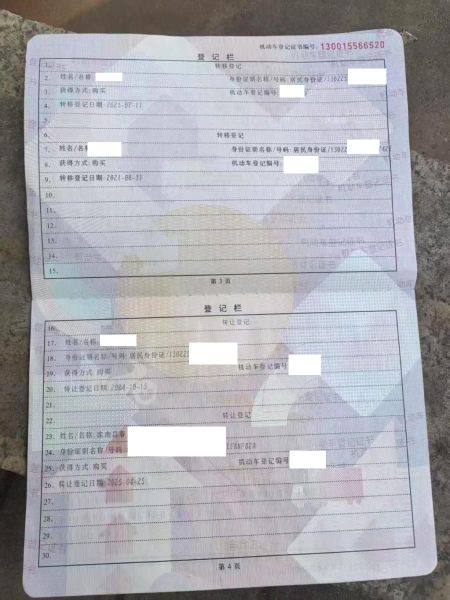 机动车登记证书编号: 130015566520
登记栏
1. 转移登记
2. 姓名/名称: 身份证明名称/号码: 居民身份证/130225
3. 获得方式: 购买 机动车登记编号:
4. 转移登记日期: 2021-07-11
5.
6. 转移登记
7. 姓名/名称 身份证明名称/号码: 居民身份证/13022
8. 获得方式: 购买 机动车登记编号:
9. 转移登记日期: 2021-08-31
10.
11.
12.
13.
14.
15.
第 3 页
登记栏
16. 转让登记
17. 姓名/名称:
18. 身份证明名称/号码: 居民身份证/130225
19. 获得方式: 购买 机动车登记编号:
20. 转让登记日期:
21.
22. 转让登记
23. 姓名/名称: 滦南县
24. 身份证明名称/号码:
25. 获得方式: 购买 机动车登记编号
26. 转让登记日期: 2025-04-25
27.
28.
29.
30.
第 4 页